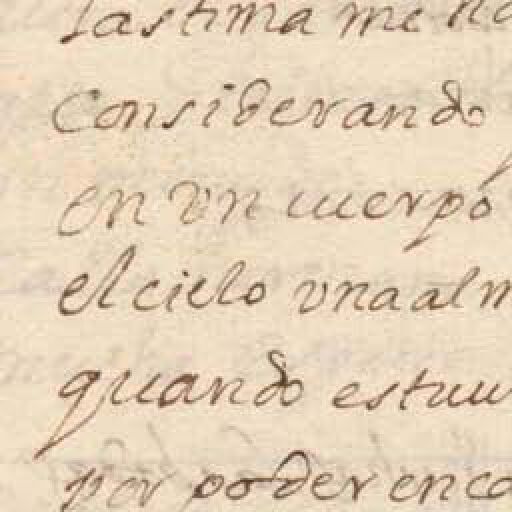 lastima me ha
Considerando
en vn cuerpo
el cielo vna alm
quando estuu
por poder enca